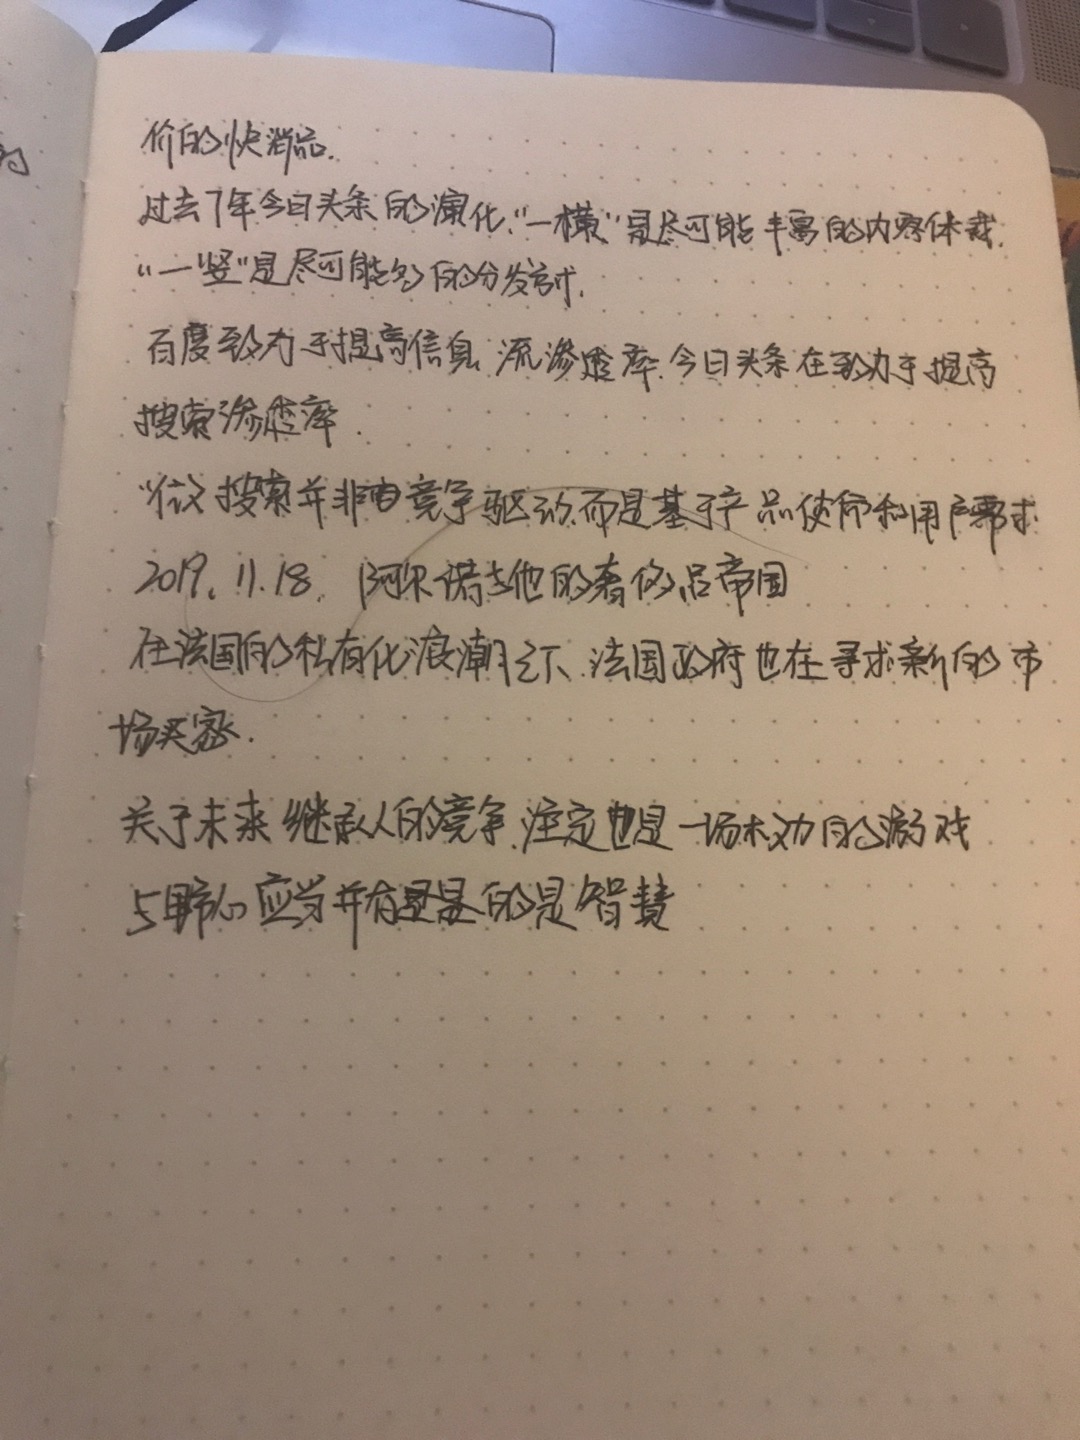 的
价的快消品.
过去7年今日头条的演化,"一横"是尽可能丰富的内容体裁.
"一竖"是尽可能多的分发方式.
百度致力于提高信息流渗透率.今日头条在致力于提高
搜索渗透率.
做搜索并非由竞争驱动.而是基于产品使命和用户需求
2019.11.18. 阿尔诺与他的奢侈品帝国
在法国的私有化浪潮之下.法国政府也在寻求新的市
场买家.
关于未来继承人的竞争.注定也是一场权力的游戏
与野心应当并有的是智慧